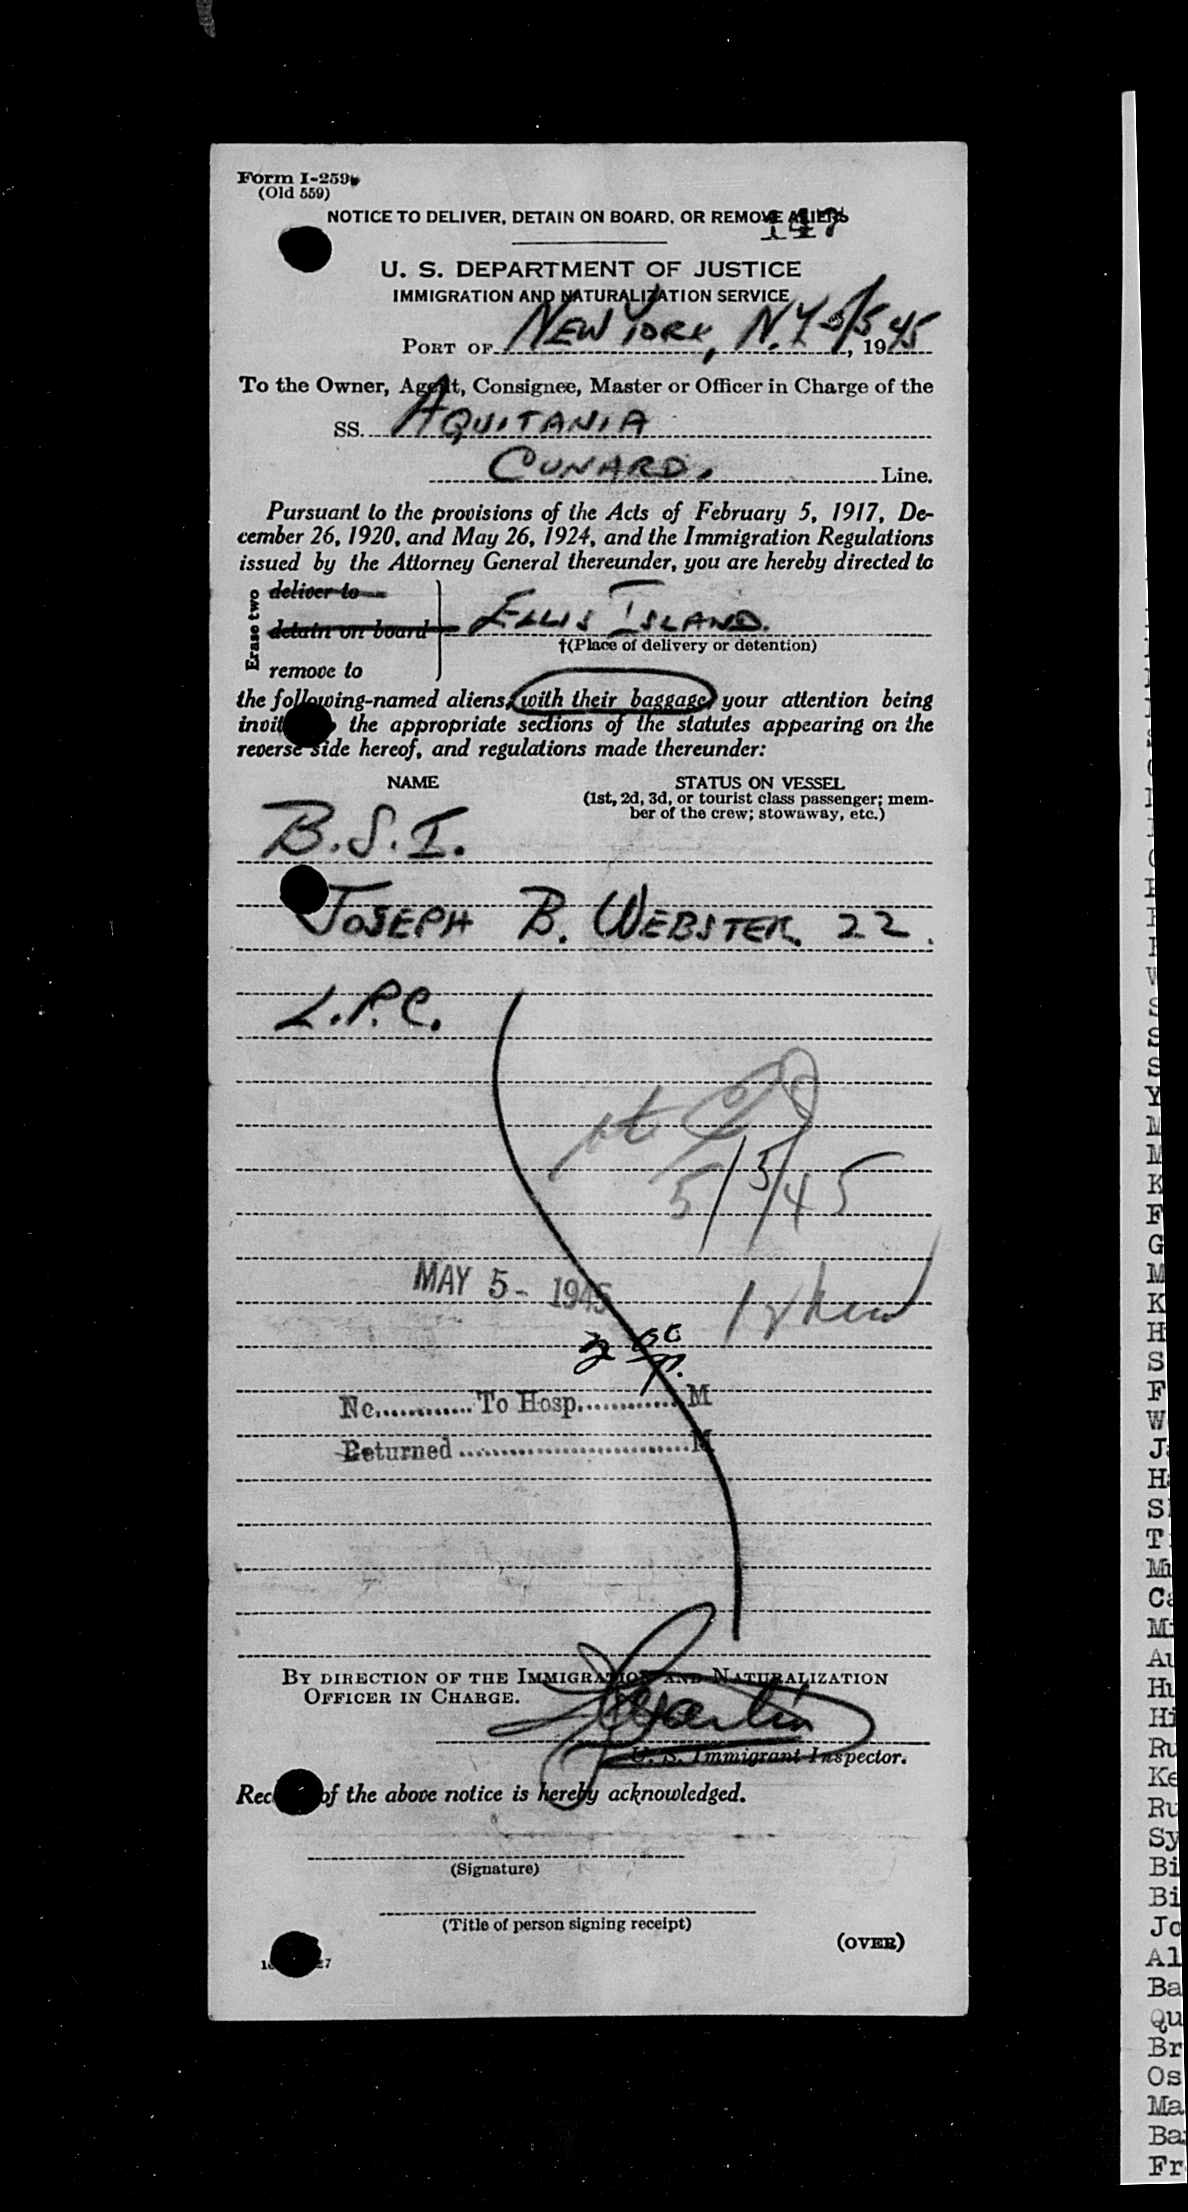 Form I-259
(Old 559)
NOTICE TO DELIVER, DETAIN ON BOARD, OR REMOVE ALIENS
147
U. S. DEPARTMENT OF JUSTICE
IMMIGRATION AND NATURALIZATION SERVICE
PORT OF NEW YORK, N.Y. 5/5, 1945
To the Owner, Agent, Consignee, Master or Officer in Charge of the
SS. AQUITANIA
CUNARD. Line.
Pursuant to the provisions of the Acts of February 5, 1917, De-
cember 26, 1920, and May 26, 1924, and the Immigration Regulations
issued by the Attorney General thereunder, you are hereby directed to
Erase two
deliver to
detain on board ELLIS ISLAND.
†(Place of delivery or detention)
remove to
the following-named aliens, with their baggage, your attention being
the appropriate sections of the statutes appearing on the
reverse side hereof, and regulations made thereunder:
NAME STATUS ON VESSEL
(1st, 2d, 3d, or tourist class passenger; mem-
ber of the crew; stowaway, etc.)
B.S.I.
JOSEPH B. WEBSTER. 22.
L.P.C.
5/5/45
MAY 5 - 1945
2 00 P.
No............ To Hosp............. M
Returned ............................ M
BY DIRECTION OF THE IMMIGRATION AND NATURALIZATION
OFFICER IN CHARGE.
Martin
U. S. Immigrant Inspector.
of the above notice is hereby acknowledged.
(Signature)
(Title of person signing receipt)
(OVER)
W
S
S
S
Y
M
M
K
F
G
M
K
H
S
F
W
J
H
S
T
Mu
Ca
Mi
Au
Hu
Hi
Ru
Ke
Ru
Sy
Bi
Bi
Jo
Al
Ba
Qu
Br
Os
Ma
Ba
Fr